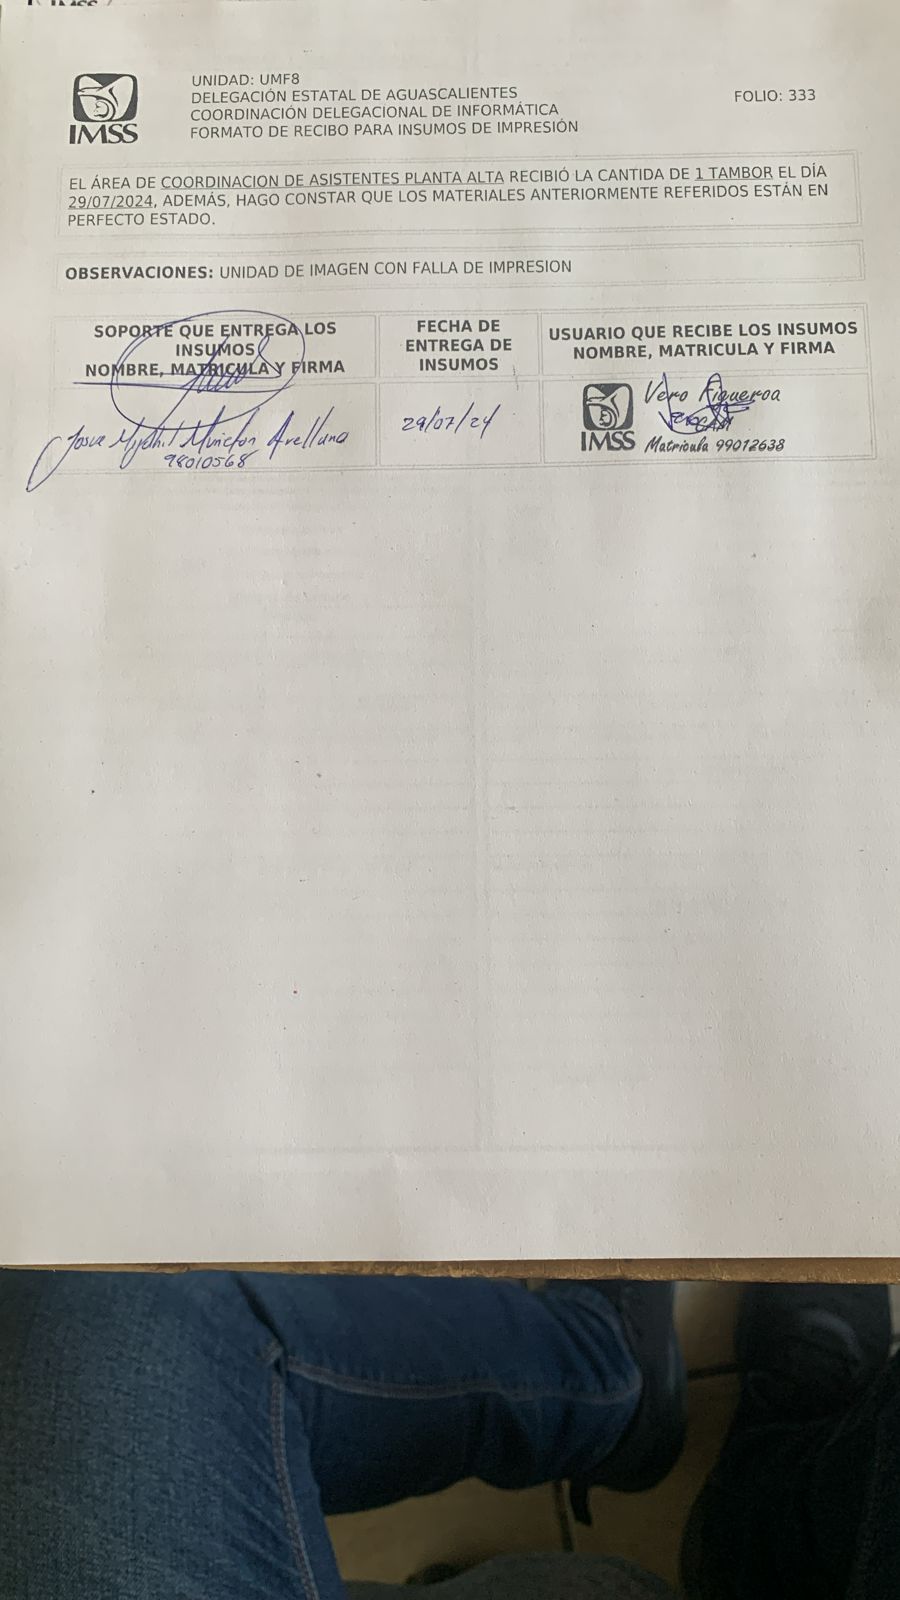 IMSS
UNIDAD: UMF8
DELEGACIÓN ESTATAL DE AGUASCALIENTES
COORDINACIÓN DELEGACIONAL DE INFORMÁTICA
FORMATO DE RECIBO PARA INSUMOS DE IMPRESIÓN
FOLIO: 333
EL ÁREA DE COORDINACION DE ASISTENTES PLANTA ALTA RECIBIÓ LA CANTIDAD DE 1 TAMBOR EL DÍA
29/07/2024, ADEMÁS, HAGO CONSTAR QUE LOS MATERIALES ANTERIORMENTE REFERIDOS ESTÁN EN
PERFECTO ESTADO.
OBSERVACIONES: UNIDAD DE IMAGEN CON FALLA DE IMPRESION
SOPORTE QUE ENTREGA LOS
INSUMOS
NOMBRE, MATRICULA Y FIRMA
FECHA DE
ENTREGA DE
INSUMOS
USUARIO QUE RECIBE LOS INSUMOS
NOMBRE, MATRICULA Y FIRMA
Josue Arellano
98010568
29/07/24
IMSS
Vero Figueroa
Matricula 99012638